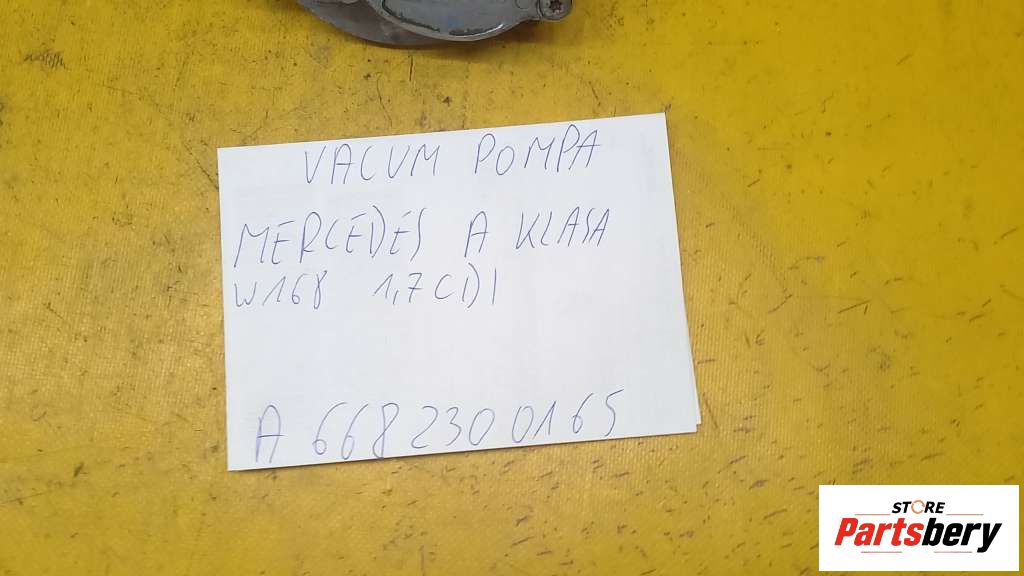 VACUM POMPA
MERCEDES A KLASA
W168 1,7CDI
A 668 230 0165
STORE
Partsbery